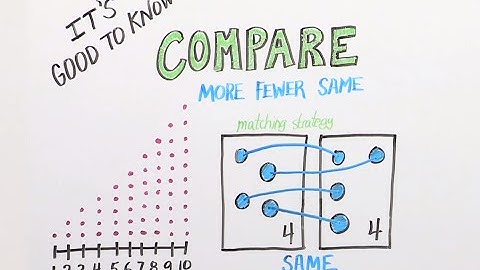 IT'S
GOOD TO KNOW
COMPARE
MORE FEWER SAME
matching strategy
4 4
SAME
1 2 3 4 5 6 7 8 9 10